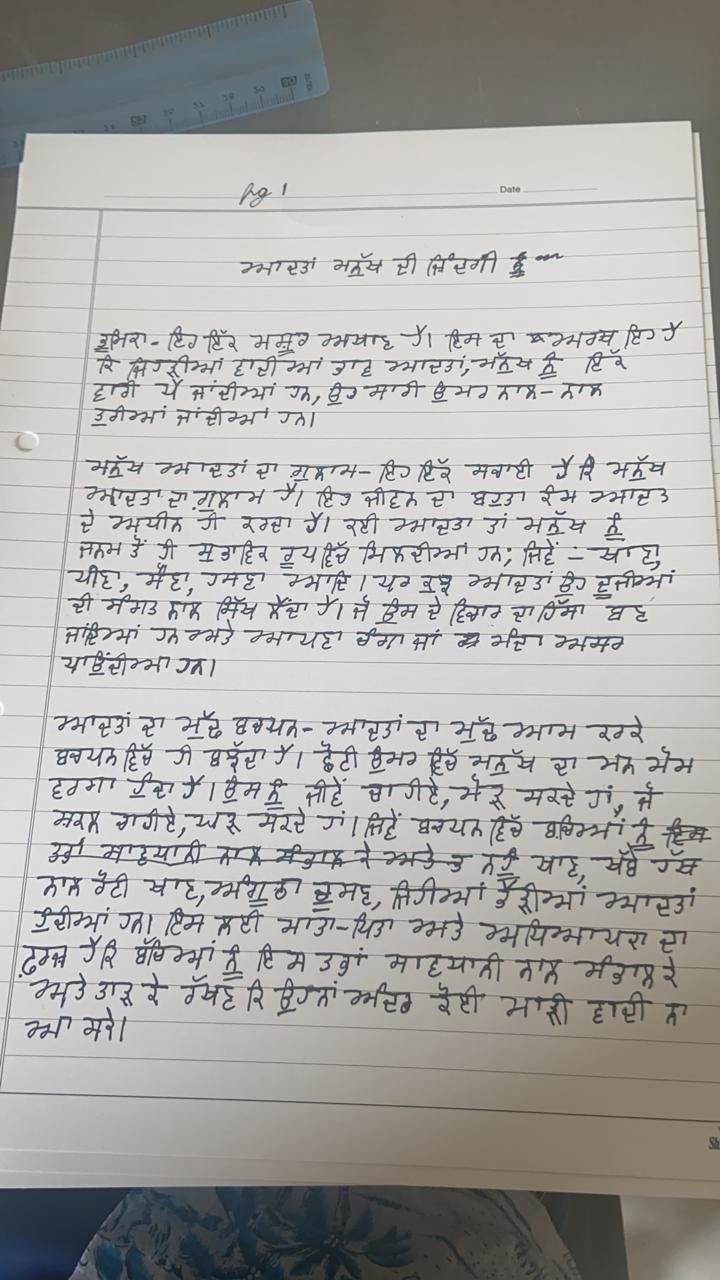 pg 1
Date
ਆਦਤਾਂ ਮਨੁੱਖ ਦੀ ਜ਼ਿੰਦਗੀ
ਭੂਮਿਕਾ- ਇਹ ਇੱਕ ਮਸ਼ਹੂਰ ਅਖਾਣ ਹੈ। ਇਸ ਦਾ ਅਰਥ ਇਹ ਹੈ
ਕਿ ਜਿਹੜੀਆਂ ਵਾਦੀਆਂ ਭਾਵ ਆਦਤਾਂ, ਮਨੁੱਖ ਨੂੰ ਇੱਕ
ਵਾਰੀ ਪੈ ਜਾਂਦੀਆਂ ਹਨ, ਉਹ ਸਾਰੀ ਉਮਰ ਨਾਲ-ਨਾਲ
ਤੁਰੀਆਂ ਜਾਂਦੀਆਂ ਹਨ।
ਮਨੁੱਖ ਆਦਤਾਂ ਦਾ ਗੁਲਾਮ- ਇਹ ਇੱਕ ਸਚਾਈ ਹੈ ਕਿ ਮਨੁੱਖ
ਆਦਤਾਂ ਦਾ ਗੁਲਾਮ ਹੈ। ਇਹ ਜੀਵਨ ਦਾ ਬਹੁਤਾ ਕੰਮ ਆਦਤ
ਦੇ ਅਧੀਨ ਹੀ ਕਰਦਾ ਹੈ। ਕਈ ਆਦਤਾਂ ਤਾਂ ਮਨੁੱਖ ਨੂੰ
ਜਨਮ ਤੋਂ ਹੀ ਸੁਭਾਵਿਕ ਰੂਪ ਵਿੱਚ ਮਿਲਦੀਆਂ ਹਨ; ਜਿਵੇਂ - ਖਾਣਾ,
ਪੀਣਾ, ਸੌਣਾ, ਹਸਣਾ ਆਦਿ। ਪਰ ਕੁਝ ਆਦਤਾਂ ਉਹ ਦੂਜੀਆਂ
ਦੀ ਸੰਗਤ ਨਾਲ ਸਿੱਖ ਲੈਂਦਾ ਹੈ। ਜੋ ਉਸ ਦੇ ਵਿਚਾਰ ਦਾ ਹਿੱਸਾ ਬਣ
ਜਾਂਦੀਆਂ ਹਨ ਅਤੇ ਆਪਣਾ ਚੰਗਾ ਜਾਂ ਮੰਦਾ ਅਸਰ
ਪਾਉਂਦੀਆਂ ਹਨ।
ਆਦਤਾਂ ਦਾ ਮੁੱਢ ਬਚਪਨ- ਆਦਤਾਂ ਦਾ ਮੁੱਢ ਆਮ ਕਰਕੇ
ਬਚਪਨ ਵਿੱਚ ਹੀ ਬਝੱਦਾ ਹੈ। ਛੋਟੀ ਉਮਰ ਵਿੱਚ ਮਨੁੱਖ ਦਾ ਮਨ ਮੋਮ
ਵਰਗਾ ਹੁੰਦਾ ਹੈ। ਉਸ ਨੂੰ ਜੀਵੇਂ ਚਾਹੀਏ, ਮੋੜ ਸਕਦੇ ਹਾਂ, ਜੋ
ਸ਼ਕਲ ਚਾਹੀਏ, ਘੜ ਸਕਦੇ ਹਾਂ। ਜਿਵੇਂ ਬਚਪਨ ਵਿੱਚ ਬਚਿਆਂ ਨੂੰ
ਨਹੁੰ ਖਾਣ, ਖੱਬੇ ਹੱਥ
ਨਾਲ ਰੋਟੀ ਖਾਣ, ਅੰਗੂਠਾ ਚੂਸਣ, ਜਿਹੀਆਂ ਭੈੜੀਆਂ ਆਦਤਾਂ
ਹੁੰਦੀਆਂ ਹਨ। ਇਸ ਲਈ ਮਾਤਾ-ਪਿਤਾ ਅਤੇ ਅਧਿਆਪਕਾਂ ਦਾ
ਫ਼ਰਜ਼ ਹੈ ਕਿ ਬੱਚਿਆਂ ਨੂੰ ਇਸ ਤਰ੍ਹਾਂ ਸਾਵਧਾਨੀ ਨਾਲ ਸੰਭਾਲ ਕੇ
ਅਤੇ ਤਾੜ ਕੇ ਰੱਖਣ ਕਿ ਉਹਨਾਂ ਅੰਦਰ ਕੋਈ ਮਾੜੀ ਵਾਦੀ ਨਾ
ਆ ਸਕੇ।